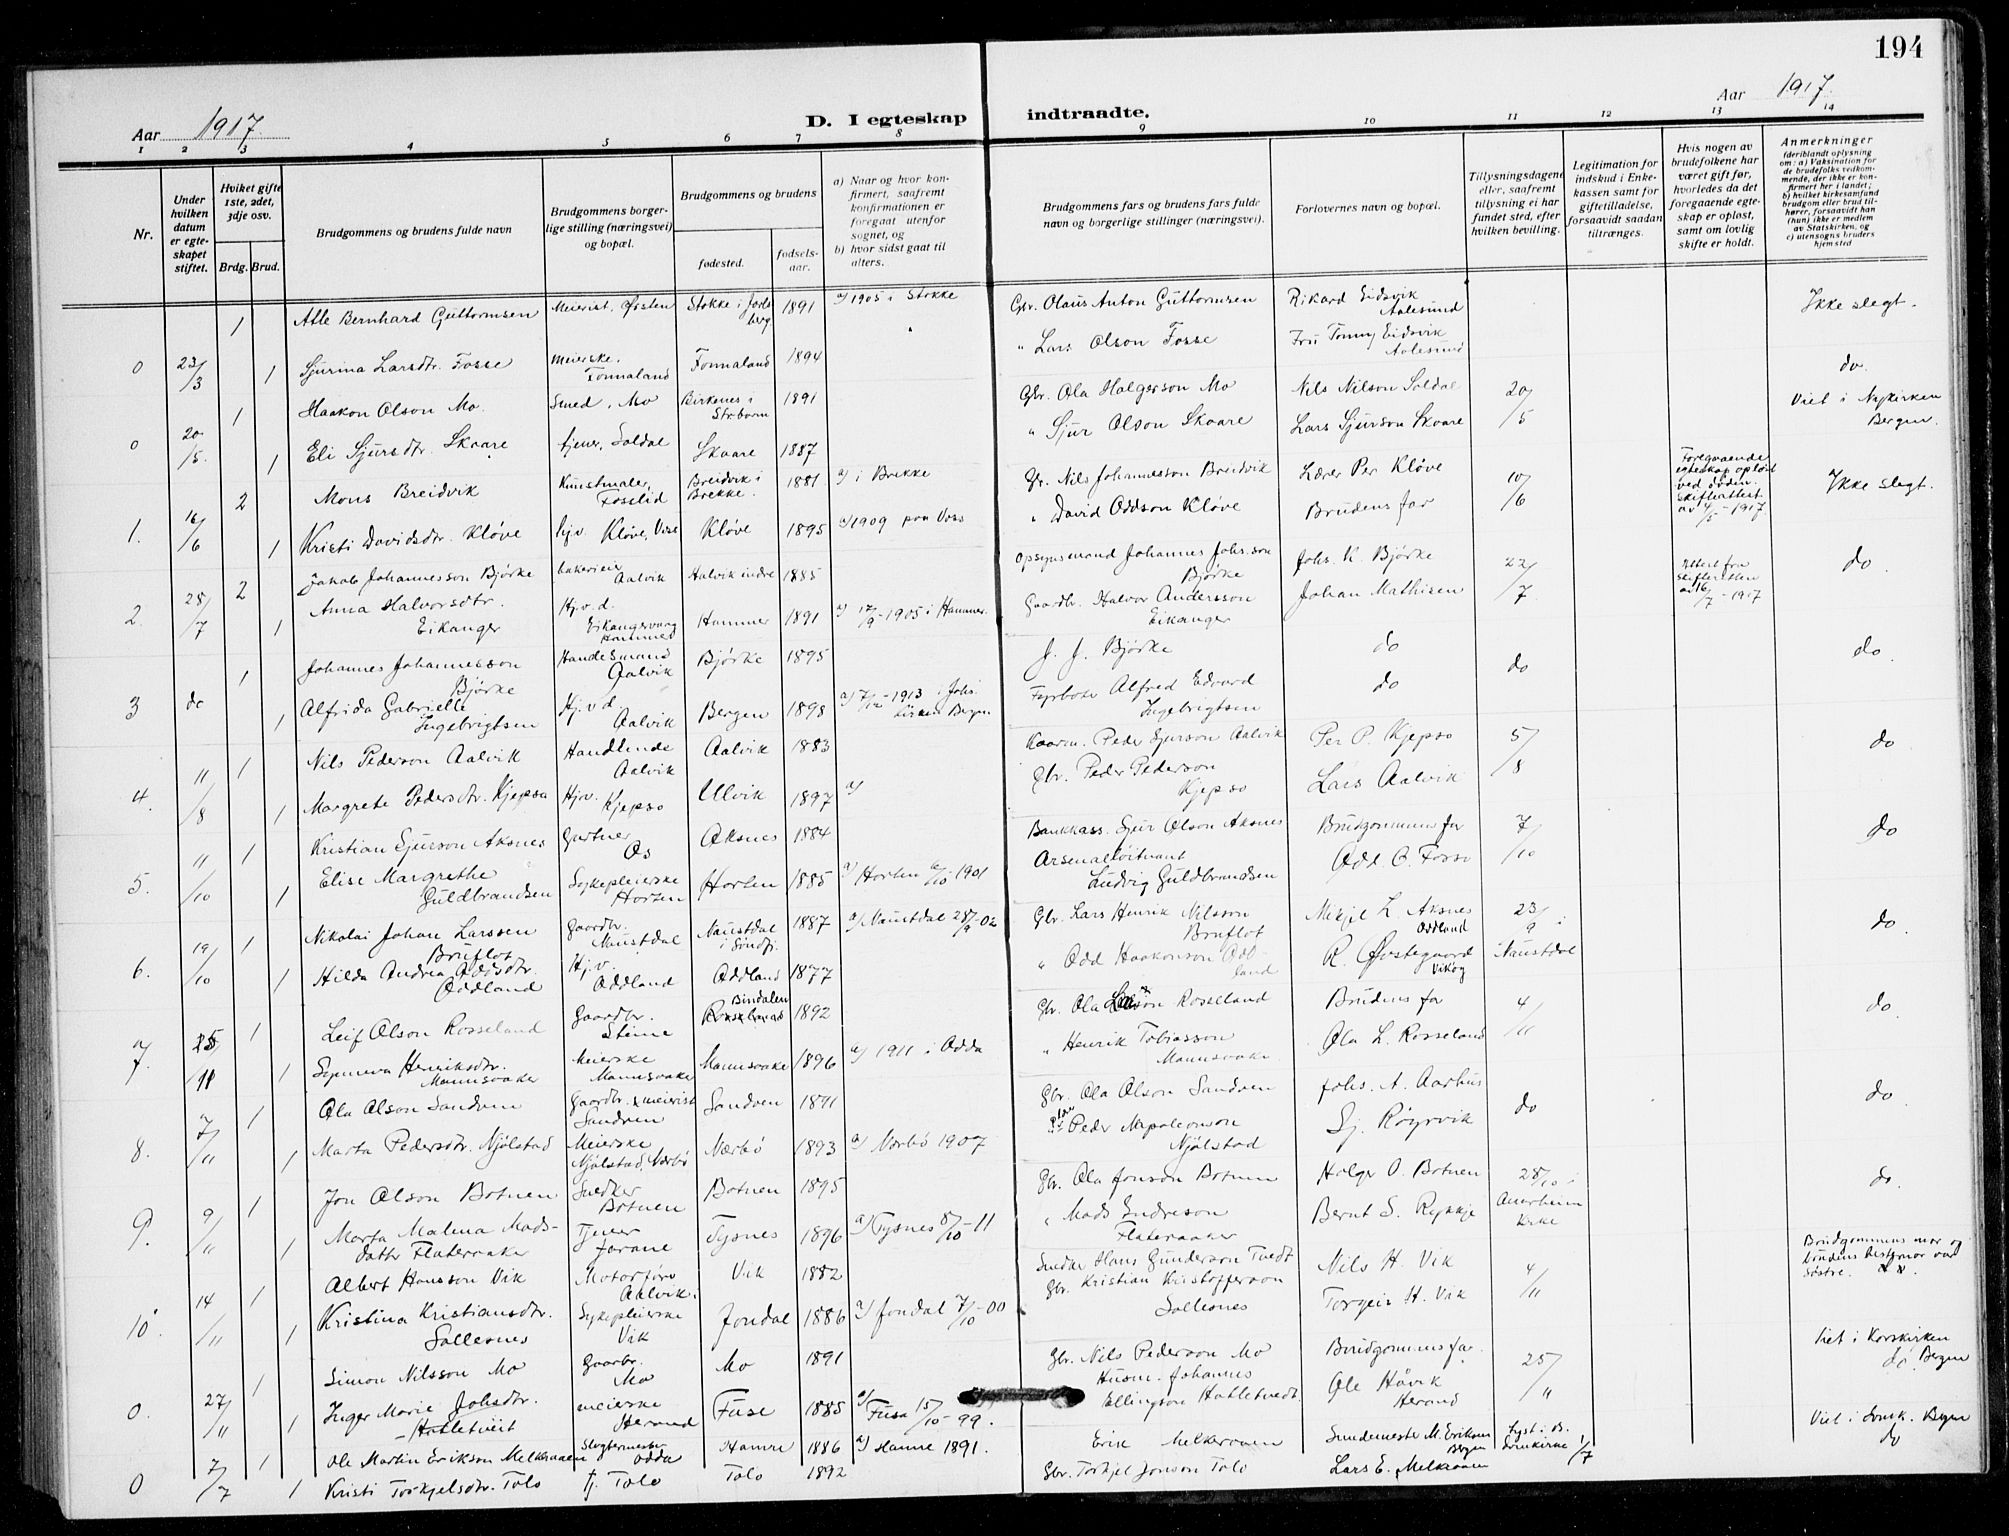 194
Aar 1917.
D. I egteskap indtraadte.
Aar 1917.
1 2 3 4 5 6 7 8 9 10 11 12 13 14
Nr.
Under hvilken datum er egteskapet stiftet.
Hvilket gifte 1ste, 2det, 3dje osv.
Brdg. Brud.
Brudgommens og brudens fulde navn
Brudgommens borgerlige stilling (næringsvei) og bopæl.
Brudgommens og brudens
fødested.
fødselsaar.
a) Naar og hvor konfirmert, saafremt konfirmationen er foregaat utenfor sognet, og
b) hvor sidst gaat til alters.
Brudgommens fars og brudens fars fulde navn og borgerlige stillinger (næringsvei).
Forlovernes navn og bopæl.
Tillysningsdagene eller, saafremt tillysning ei har fundet sted, efter hvilken bevilling.
Legitimation for indskud i Enkekassen samt for giftetilladelse, forsaavidt saadan tiltrænges.
Hvis nogen av brudefolkene har været gift før, hvorledes da det foregaaende egteskap er opløst, samt om lovlig skifte er holdt.
Anmerkninger (deriblandt oplysning om: a) Vaksination for de brudefolks vedkommende, der ikke er konfirmert her i landet; b) hvilket kirkesamfund brudgom eller brud tilhører, forsaavidt han (hun) ikke er medlem av Statskirken, og c) utensogns bruders hjemsted
1 Atle Bernhard Guttormsen Meierist, Øysten Stokke i Jarlsberg 1891 a) 1905 i Stokke Gbr. Olaus Anton Guttormsen Rikard Eidsvik Aalesund Ikke slegt.
0 23/3 1 Sjurina Larsdtr. Fosse meierske. Fonnaland Fonnaland 1894 " Lars Olson Fosse Fru Tonny Eidsvik Aalesund
1 Haakon Olson Mo. Smed, Mo Birkenes i 1891 Gbr. Ola Halgerson Mo Nils Nilson Soldal 20/5 do.
0 20/5. 1 Eli Sjursdtr. Skaare tjener, Soldal Skaare 1887 " Sjur Olson Skaare Lars Sjurson Skaare Viet i Nykirken Bergen.
2 Mons Breidvik Kunstmaler, Fosslid Breidvik i Brekke. 1881 a) i Brekke Gbr. Nils Johannesson Breidvik Lærer Per Kløve 10/6 Foregaaende egteskap opløst ved døden. skifteattest av 4/5 - 1917. Ikke slegt.
1. 16/6 1 Kristi Davidsdtr. Kløve hjv. Kløve, Voss Kløve 1895 a) 1909 paa Voss " David Oddson Kløve Brudens far
2 Jakob Johannesson Bjørke Aalvik Aalvik indre 1885 Opsynsmand Johannes Johs.son Bjørke Johs. K. Bjørke 22/7 Attest fra skifteretten av 16/7 - 1917 do.
2. 28/7 1 Anna Halvorsdtr. Eikanger Hj.v.d. Eikangervaag Hammer Hammer 1891 a) 17/9 - 1905 i Hammer. Gaardbr. Halvor Andersson Eikanger Johan Mathisen
1 Johannes Johannesson Bjørke Handelsmand Aalvik Bjørke 1895 J. J. Bjørke do do do.
3 do 1 Alfrida Gabrielle Ingebrigtsen Hj.v.d. Aalvik Bergen 1898 a) 7/12 - 1913 i Johs. kirken Bergen Fyrbøter Alfred Edvard Ingebrigtsen do
1 Nils Pederson Aalvik Handlende Aalvik Aalvik 1883 Kaarm. Peder Sjurson Aalvik Per P. Kjepso 5/8 do
4. 11/8 1 Margrete Pedersdtr. Kjepso Hjv. Kjepso Ulvik 1897 a) Gbr. Peder Pederson Kjepso Lars Aalvik
1 Kristian Sjurson Aksnes Gartner Os Aksnes 1884 Bankkass. Sjur Olson Aksnes Brudgommens far 7/10 do
5. 11/10 1 Elise Margrethe Guldbrandsen Sykepleierske Horten Horten 1885 a) Horten 6/10 1901 Arsenalløitnant Ludvig Guldbrandsen Odd O. Fosso
Nikolai Johan Larssen Bruflot Gaardbr. Naustdal Naustdal i Søndfj. 1887 a) Naustdal 28/9 - 02 Gbr. Lars Henrik Nilsson Bruflot Mikjel L. Aksnes Oddland 23/9 i Naustdal do.
6. 19/10 1 Hilda Andrea Oddsdtr. Oddland Hj.v. Oddland Oddland 1877 " Odd Haakonson Oddland R. Østegaard Vikøy
1 Leif Olson Rosseland Gaardbr. Steine Bindalen Rosseland 1892 Gbr. Ola Larson Rosseland Brudens far 4/11 do.
7. 25/11 1 Synneva Henriksdtr. Mannsvaker Meierske Mannsvaker Mannsvaker 1896 a) 1911 i Odda " Henrik Tobiasson Mannsvaker Ola L. Rosseland
1 Ola Olson Sandven Gaardbr. & meierist Sandven Sandven 1891 Gbr. Ola Olson Sandven Johs. A. Aarhus do do.
8. 7/11 1 Marta Pedersdtr. Njølstad Meierske Njølstad, Nærbø Nærbø 1893 a) Nærbø 1907 Peder Napoleonson Njølstad Sj. Røyrvik
1 Jon Olson Botnen Snedker Botnen Botnen 1895 Gbr. Ola Jonson Botnen Holger O. Botnen 28/10 i Aaarheim kirke do.
9. 9/11 1 Marta Malena Madsdatter Flateraaker Tjener Tysnes 1896 a) Tysnes 8/10 - 11 " Mads Endreson Flateraaker Bernt S. Rykkje
1 Albert Hansson Vik Motorfører Aalvik. Vik 1882 Snedker Hans Gunderson Tvedt Nils H. Vik 4/11 Brudgommens mor og brudens bestemor var søstre.
10. 14/11 1 Kristina Kristiansdtr. Sollesnes Sykepleierske Vik Jondal 1886 a) Jondal 7/10 - 00 Gbr. Kristian Kristofferson Sollesnes Torgeir H. Vik
1 Simon Nilsson Mo Gaardbr. Mo Mo 1891 Gbr. Nils Pederson Mo Brudgommens far 25/11 Viet i Korskirken Bergen do.
0. 27/11 1 Inger Marie Johsdtr. Hatletveit meierske Herand Fuse 1885 a) Fusa 15/10 - 99. Husm. Johannes Ellingson Hatletvedt Ole Håvik Herand
1 Ole Martin Erikson Melkeraaen Slagtermester Odda Hamre 1886 a) Hamre 1891. Erik Melkeraaen M. Erikson Bergen Lyst i B. 1/7 Viet i Bergen do
0 7/7 1 Kristi Torkjelsdtr. Tolo tj. Tolo Tolo 1892 Gbr. Torkjel Jonson Tolo Lars E. Melkeraaen